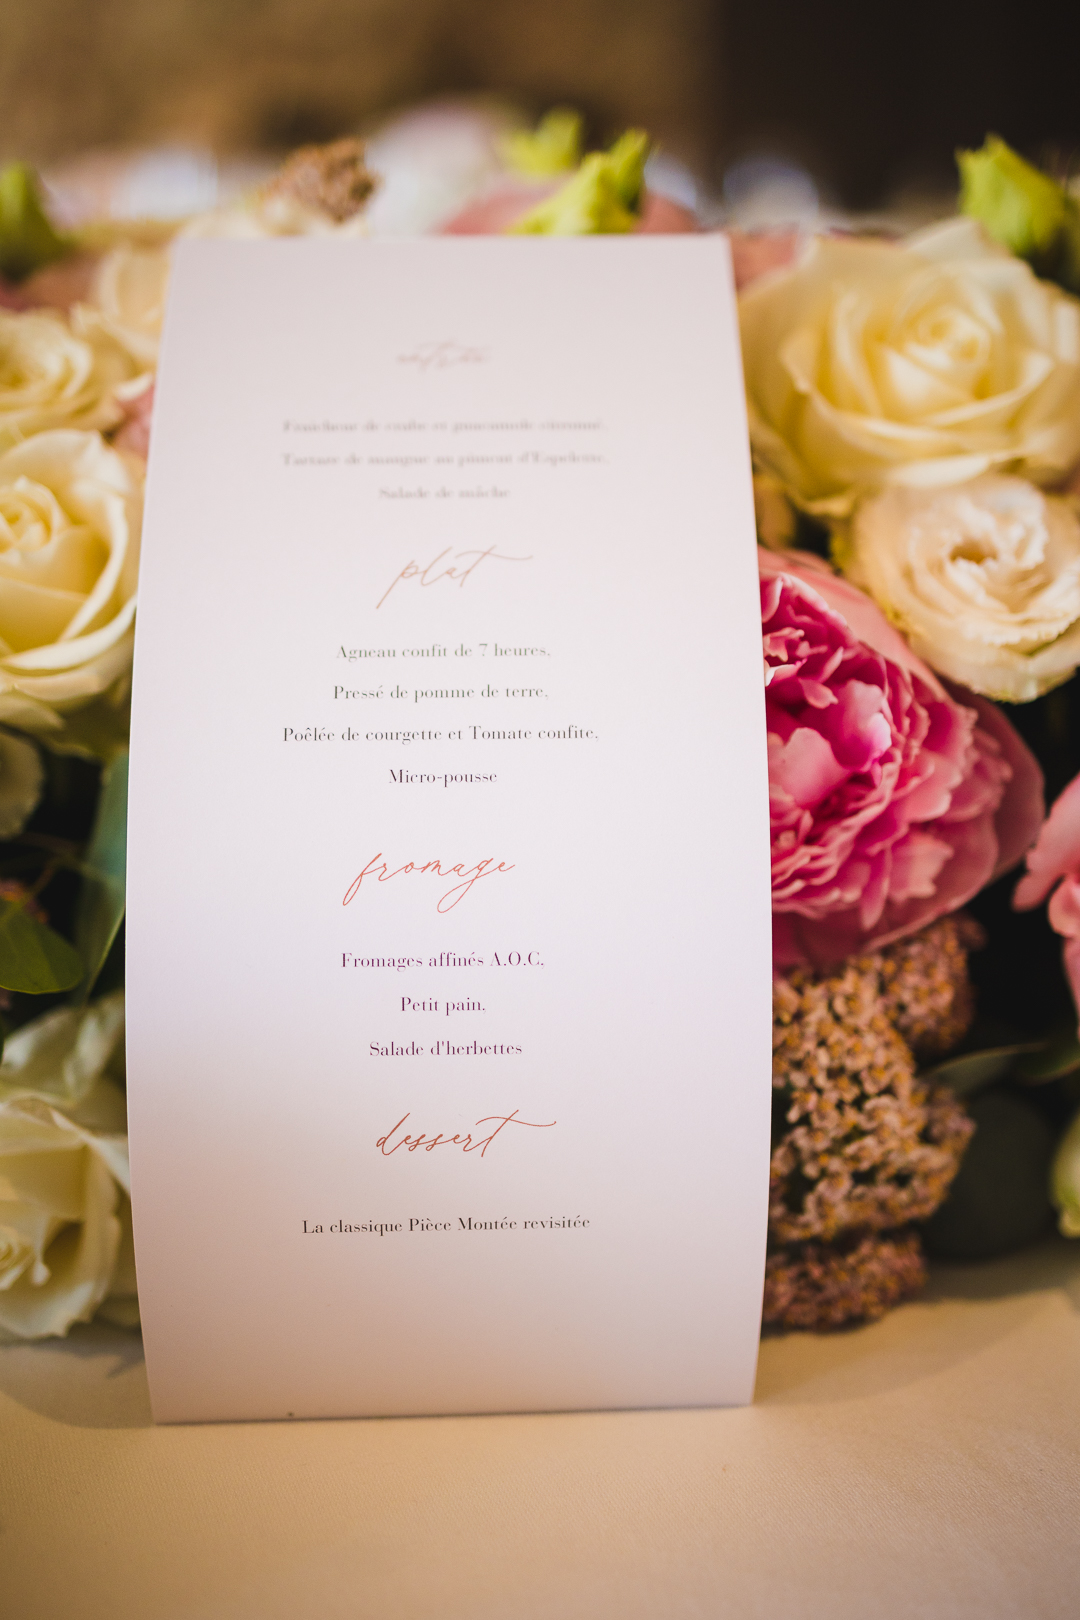 entrée
Fraîcheur de crabe et guacamole citronné,
Tartare de mangue au piment d'Espelette,
Salade de mâche
plat
Agneau confit de 7 heures,
Pressé de pomme de terre,
Poêlée de courgette et Tomate confite,
Micro-pousse
fromage
Fromages affinés A.O.C,
Petit pain,
Salade d'herbettes
dessert
La classique Pièce Montée revisitée